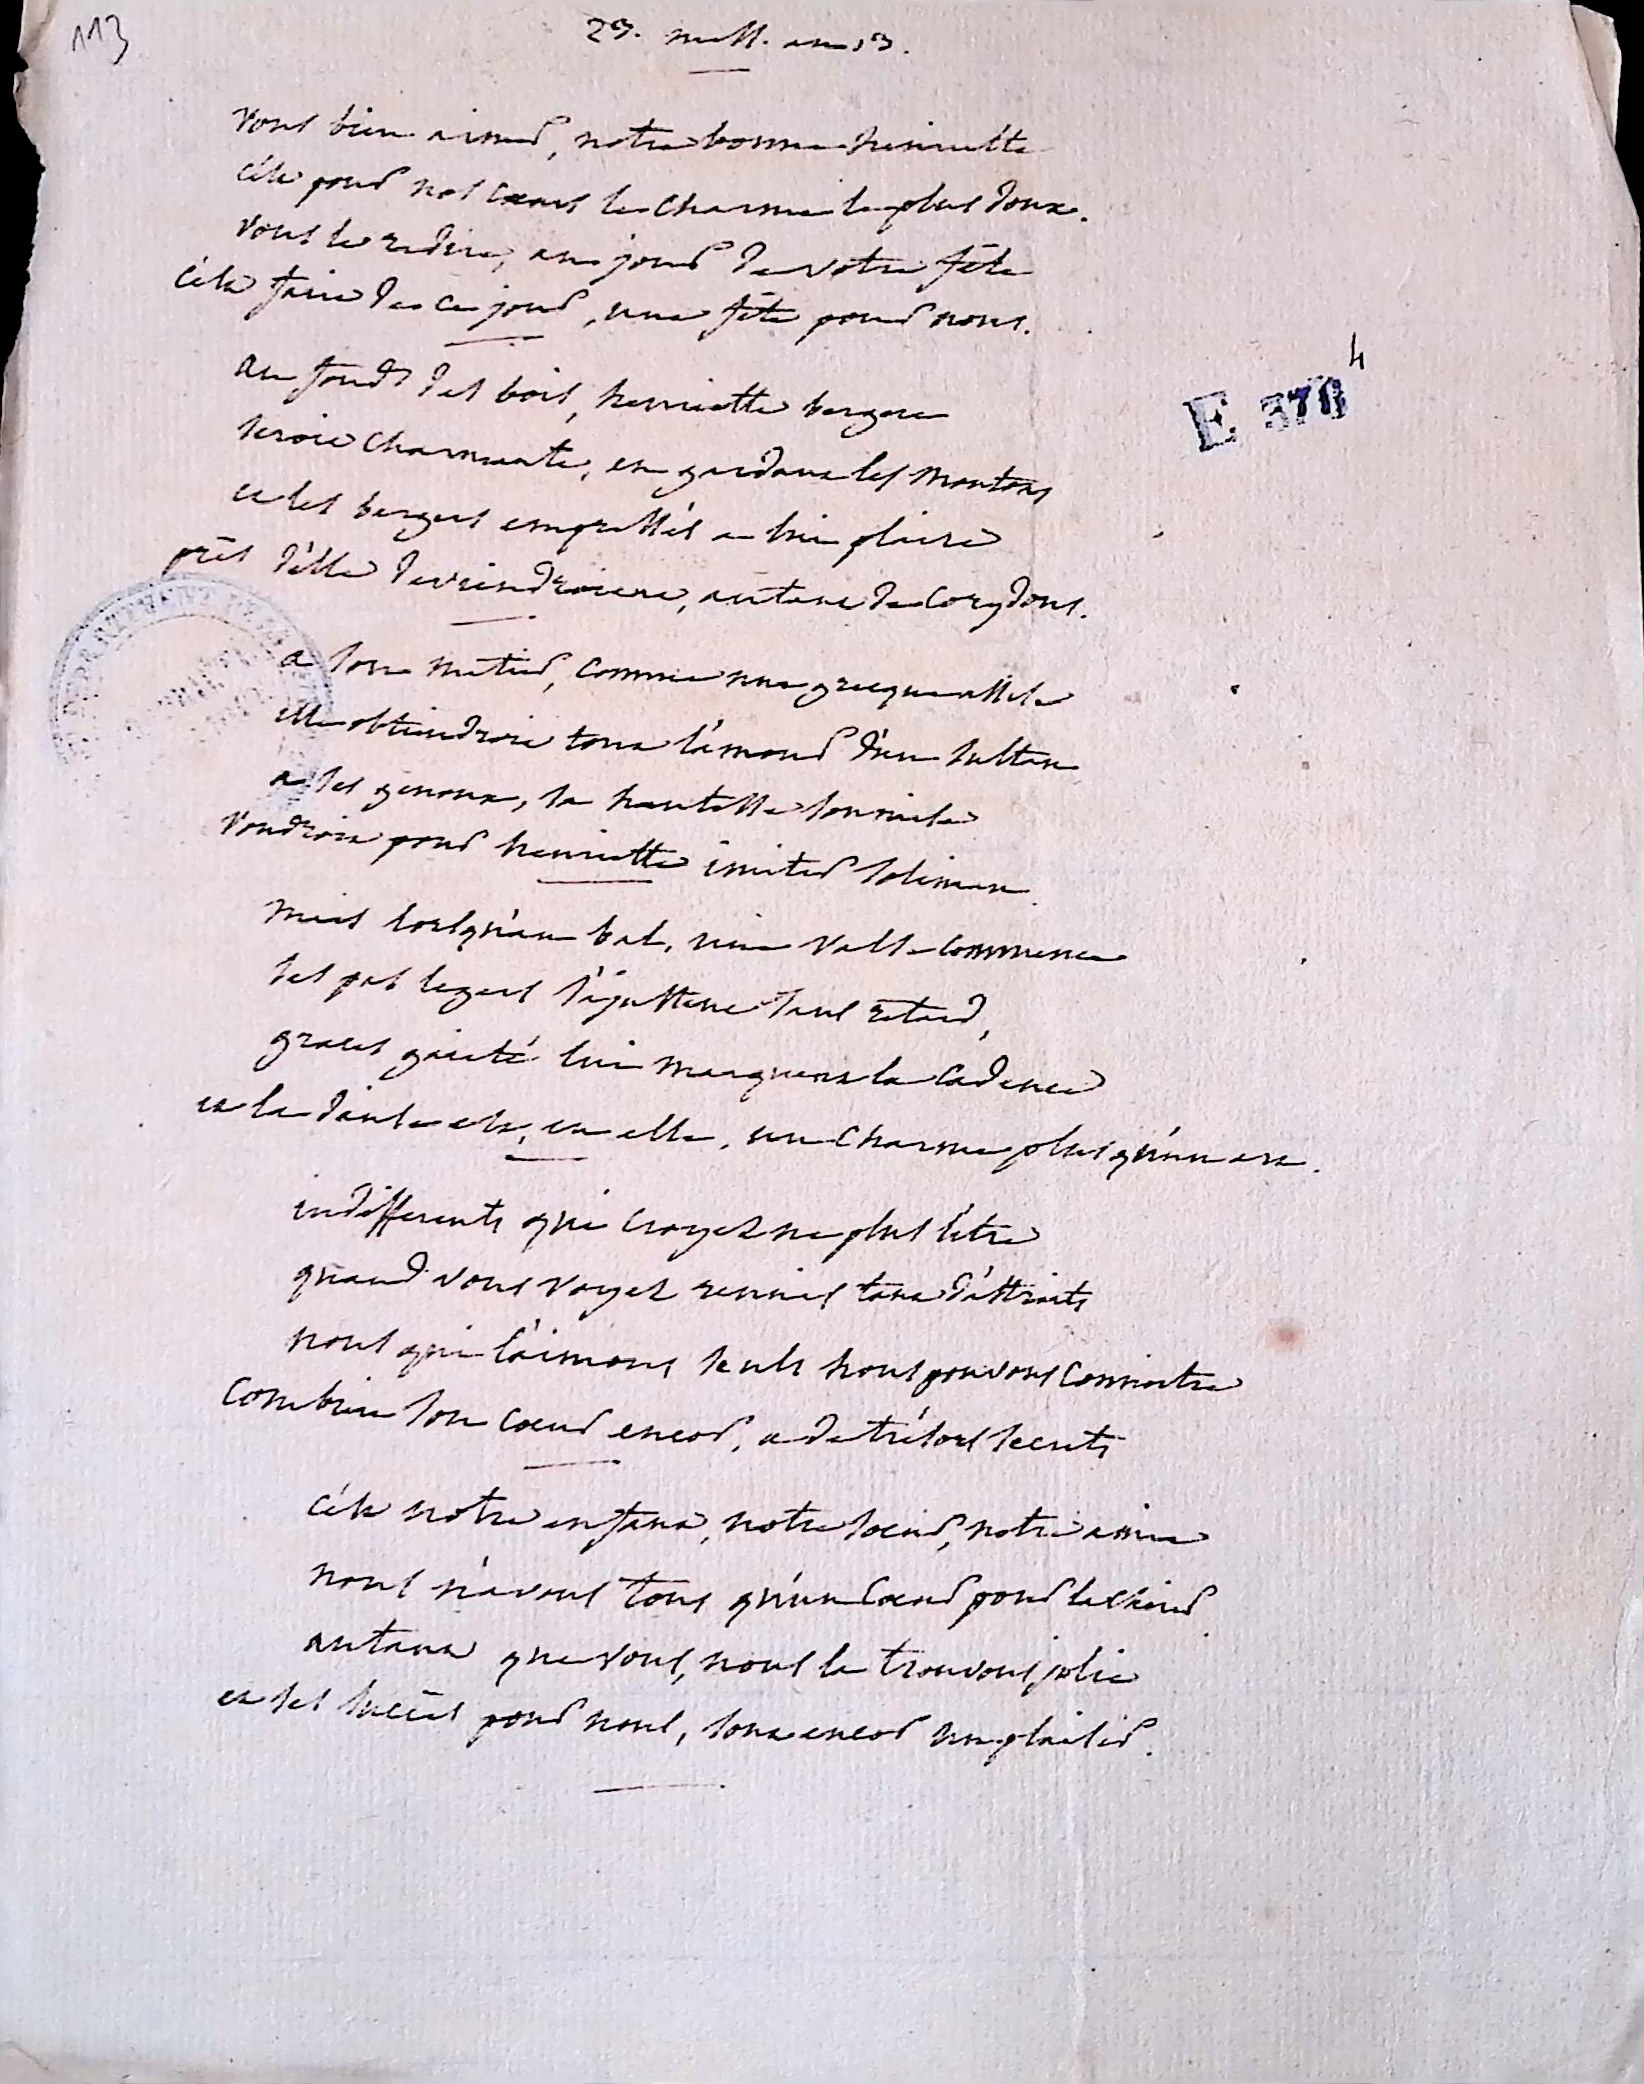 113
29. mess. an 13.
vous bien aimer, notre bonne henriette
c'est pour nos cœurs le charme le plus doux.
vous le redire, au jour de votre fête
c'est faire de ce jour, une fête pour nous.
E 378 4
au fond des bois, henriette bergere
seroit charmante, en gardant les moutons
et les bergers empressés a lui plaire
près d'elle deviendroient, autant de Corydons.
a son metier, comme une grecque assise
elle obtiendroit tout l'amour d'un sultan
a ses genoux, sa hautesse soumise
voudroit pour henriette imiter soliman.
mais lorsqu'au bal, une valse commence
ses pas legers s'ajustent sans retard,
graces gaieté lui marquent la cadence
et la danse est, en elle, un charme plus qu'un art.
indifferents qui croyez ne plus l'être
quand vous voyez reunis tant d'attraits
nous qui l'aimons seuls nous pouvons connoitre
combien son cœur encor, a de trésors secrets
c'est notre enfant, notre sœur, notre amie
nous n'avons tous qu'un cœur pour la cherir.
autant que vous, nous la trouvons jolie
et ses succès pour nous, sont encor un plaisir.